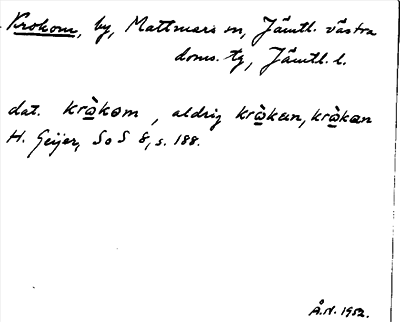 Krokom, by, Mattmars sn, Jämtl. västra
doms. tg, Jämtl. l.
dat. kròkom , aldrig kròkan, kròkan
H. Geijer, SoS 8, s. 188.
Å.N. 1952.